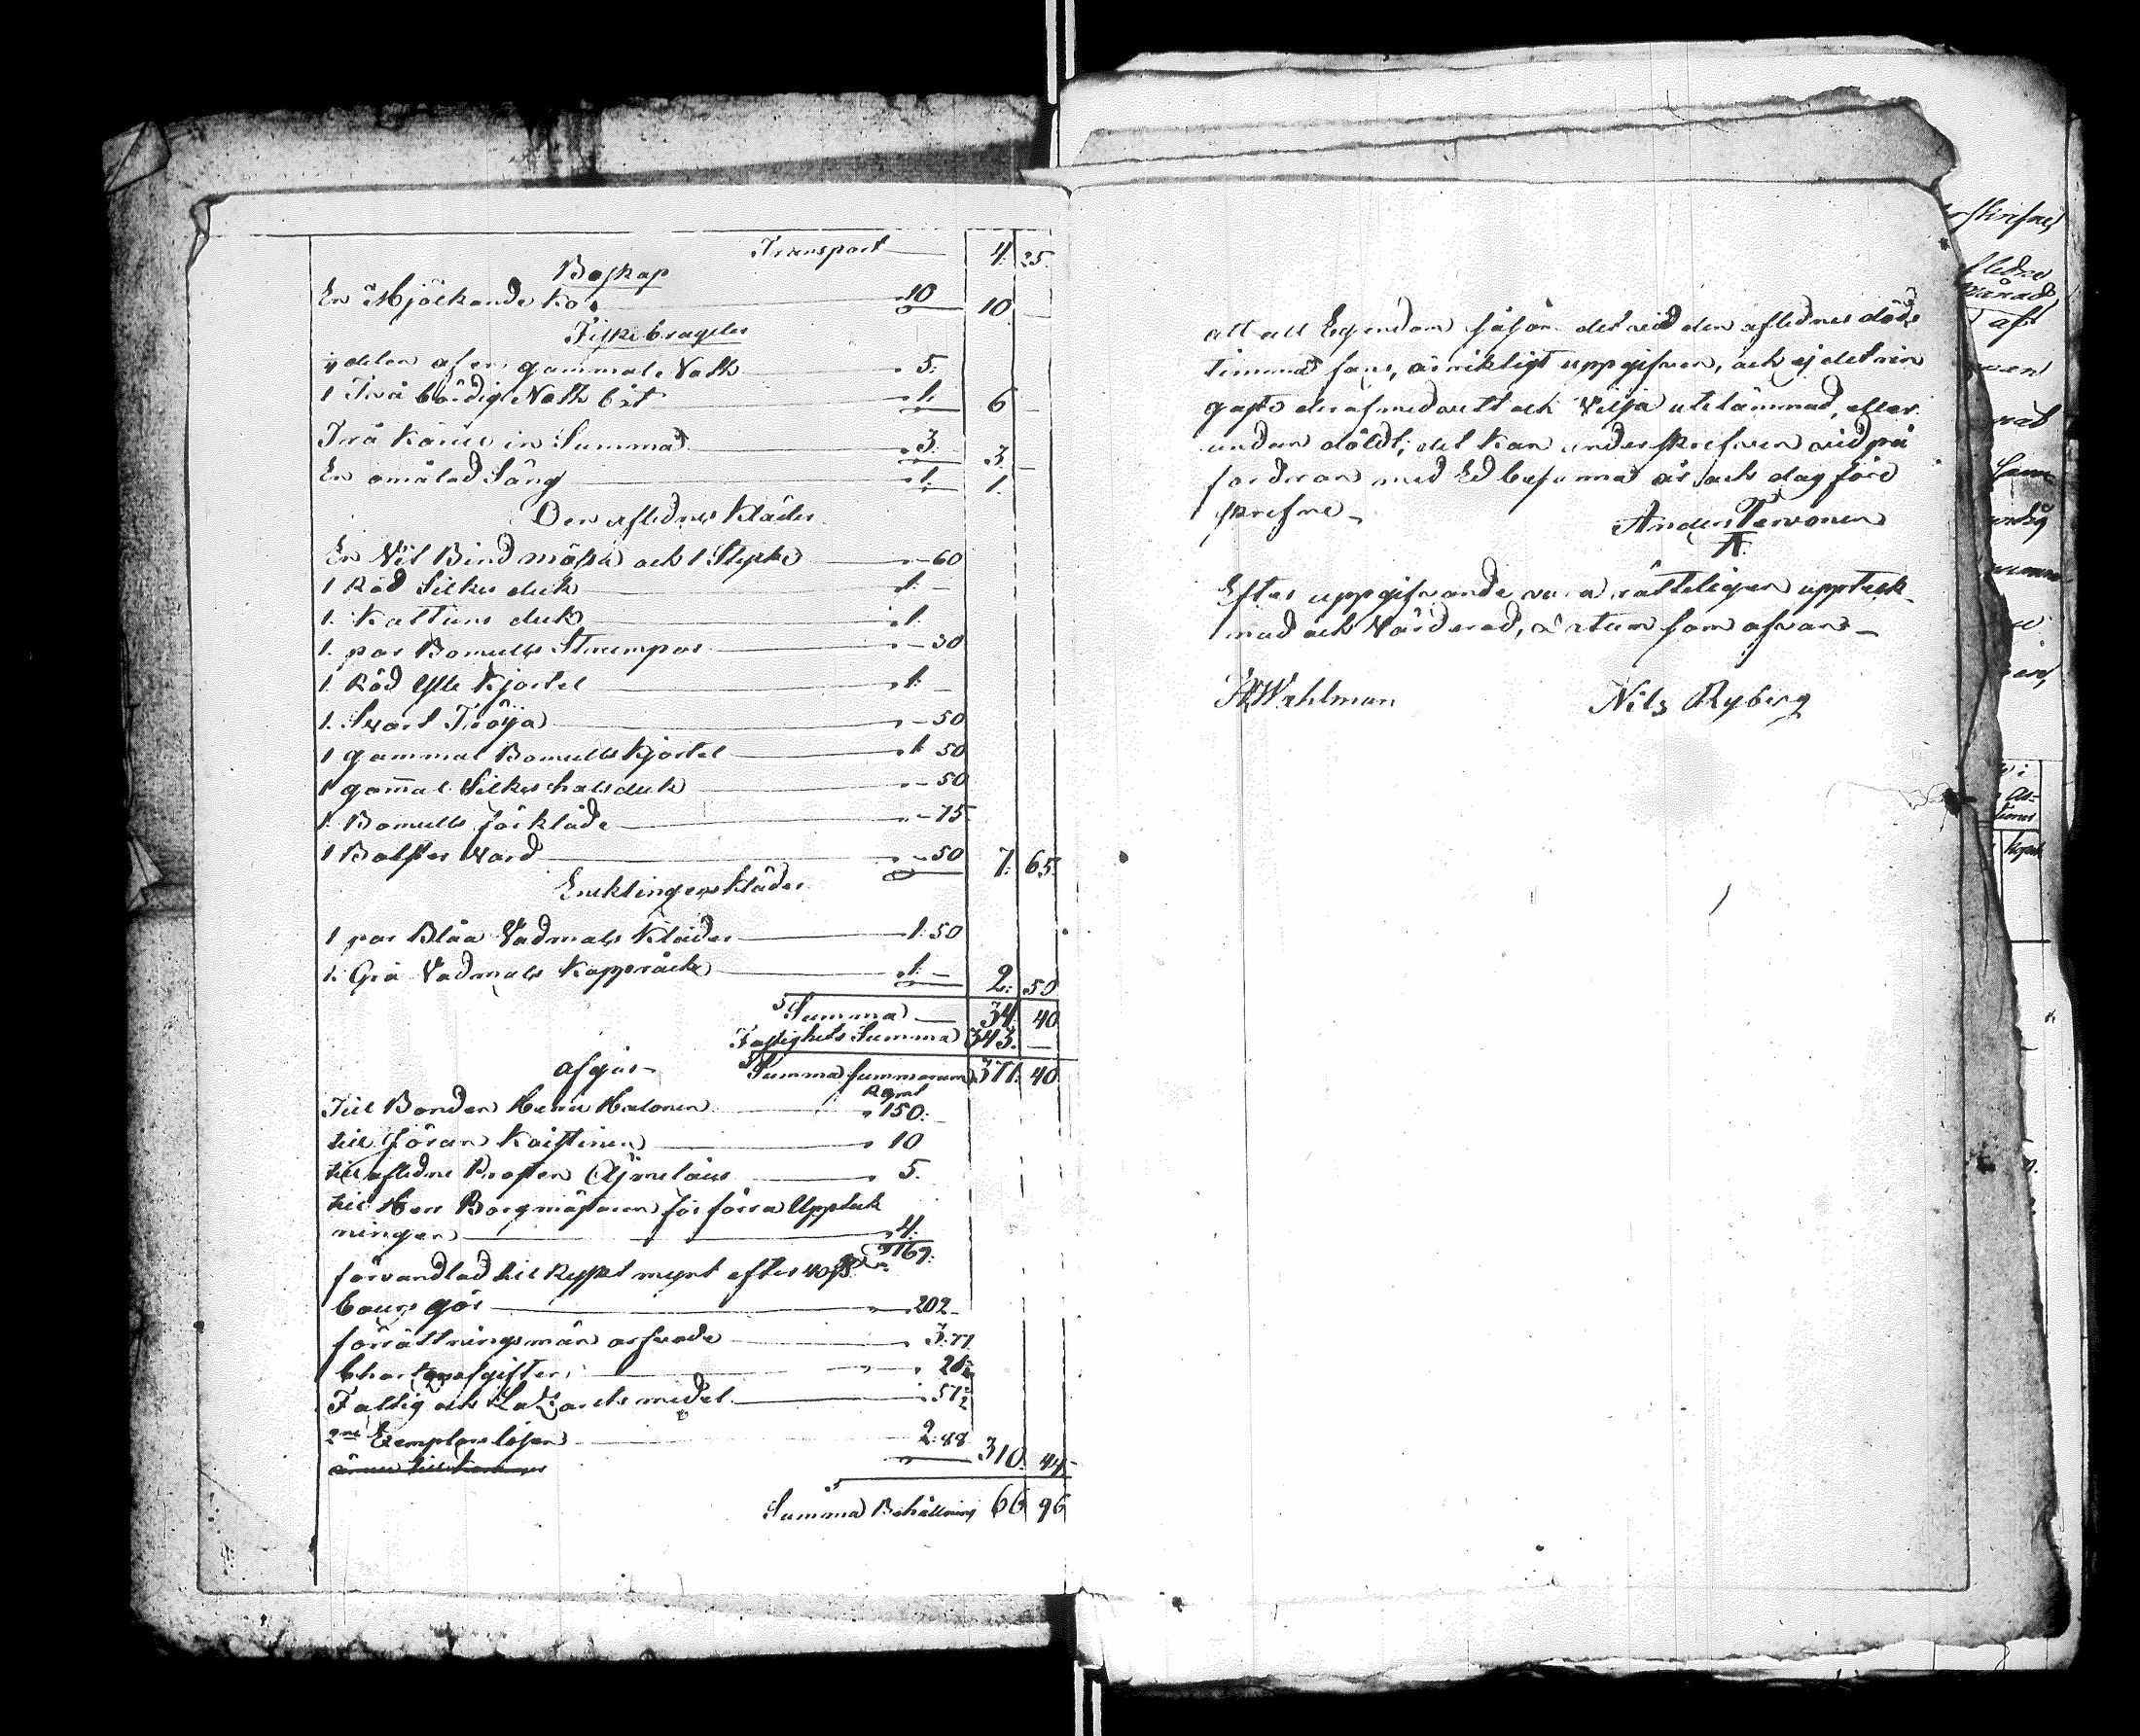 Transport 4. 25.
Boskap
En Mjölkande Ko 10 10. —
Fiske bragder
delen af en gammal Noth 5.
1 Två bördig Noth båt 1. 6 —
Två Kärill in Summa 3. 3. —
En omålad Säng 1. 1.
Den aflednes Kläder
En Nöt Bindmössa och 1 Stycke — 60
1 Röd Silkes duk 1. —
1. Kattuns duk 1.
1. par Bomulls Strumpor — 30
1. Röd Ylle Kjortel 1. —
1. Svart Tröja — 50
1 gammal Bomulls Kjortel 1. 50
1 gam̄al Silkes halsduk — 50
1. Bomulls förkläde — 75
1 Bolster Vard — 50 7. 65.
Enklingens Kläder
1 par Blåa Vadmals Kläder 1. 50
1. Grå Vadmals Kapprock 1. — 2. 50
Summa 34. 40
Fastighets Summa 343. —
afgår Summa summarum 377. 40
Till Bonden Halonen 150. —
till Göran Koistinen 10
till aflidne Prosten Äjmelæus 5.
till Herr Borgmästaren för förra Upptek
ningen 4.
169.
förvandlad till Ryskt mynt efter 40
Cours gör 202
förrättningsmän arfvode 3. 77
Charta afgiften 21
Fattig och medel 57½
2ne Exemplars lösen 2. 88 310. 44
Summa Behållning 66 96
att all Egendom såsom det vid den aflednes döds
timma fans, är riktigt uppgifven, och ej det rin
gaste deraf med vett och Vilja utelämnad, eller
undan döldt; det kan underskrefven vid på
fordran med Ed besanna år och dag före
skrefne —
Anders Tervonen
Efter uppgifvande vara rätteligen uppteck
nad och Värderad, datum som ofvan —
Wahlman Nils Ryberg